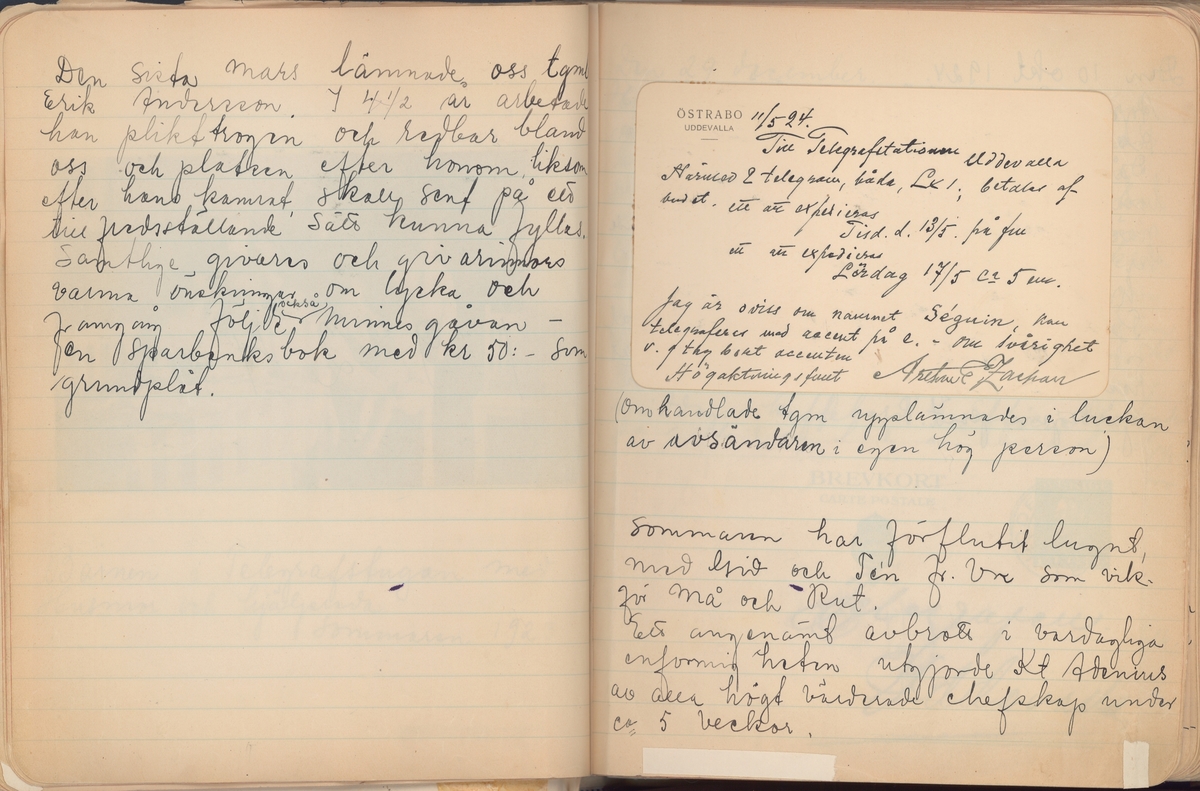 Den sista mars lämnade oss tgmb
Erik Andersson. I 4 1/2 år arbetade
han plikttrogen och redbar bland
oss och platsen efter honom, liksom
efter hans kamrat, skall sent på ett
till fredsställande sätt kunna fyllas.
Samtlige givares och givarinnors
varma önskningar om lycka och
framgång följde också minnesgåvan –
en sparbanksbok med kr 50:- som
grundplåt.
ÖSTRABO
UDDEVALLA
11/5 24.
Till Telegrafstationen Uddevalla
Härmed 2 telegram, båda, Lx 1; betalas af
budet. ett att expedieras
Tisd. d. 13/5. på fm
ett att expedieras
Lördag 17/5 ca 5 em.
Jag är oviss om namnet Séguin, kan
telegraferas med accent på e. – om svårighet
v. g. tag bort accenten
Högaktningsfullt
Zachau
(Omhandlade tgm upplämnades i luckan
av avsändaren i egen hög person)
Sommaren har förflutit lugnt,
med och Tén fr. Vre som vik.
för Må och Rut.
Ett angenämt avbrott i vardagliga
enformigheten utgjorde Kt Adenius
av alla högt värderade chefskap under
ca 5 veckor.